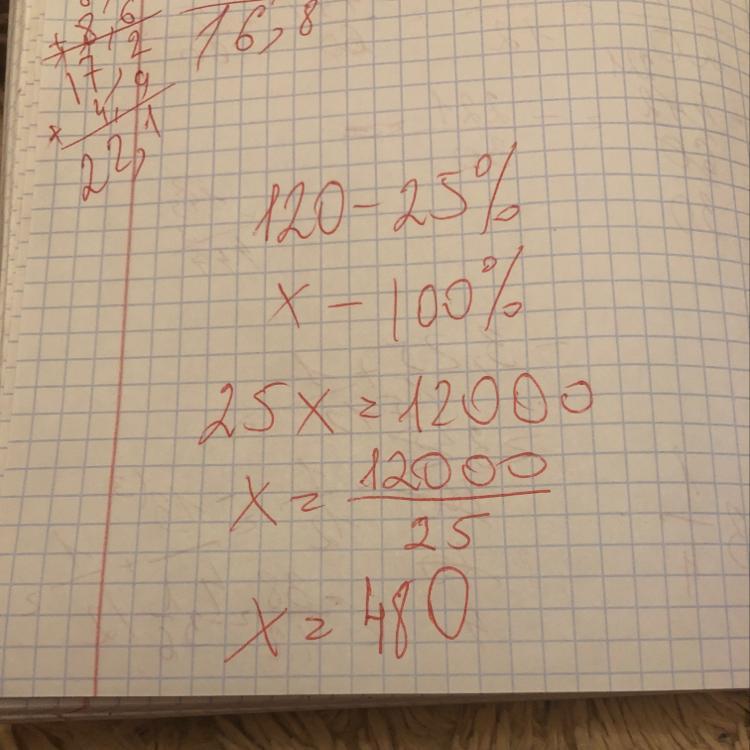 8,6
16,8
7,2
17,9
4,1
22,
120 - 25%
x - 100%
25x = 12000
x = 12000
25
x = 480